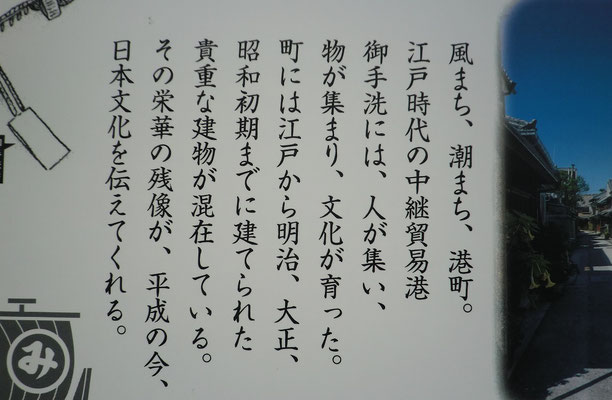 風まち、潮まち、港町。
江戸時代の中継貿易港
御手洗には、人が集い、
物が集まり、文化が育った。
町には江戸から明治、大正、
昭和初期までに建てられた
貴重な建物が混在している。
その栄華の残像が、平成の今、
日本文化を伝えてくれる。
み